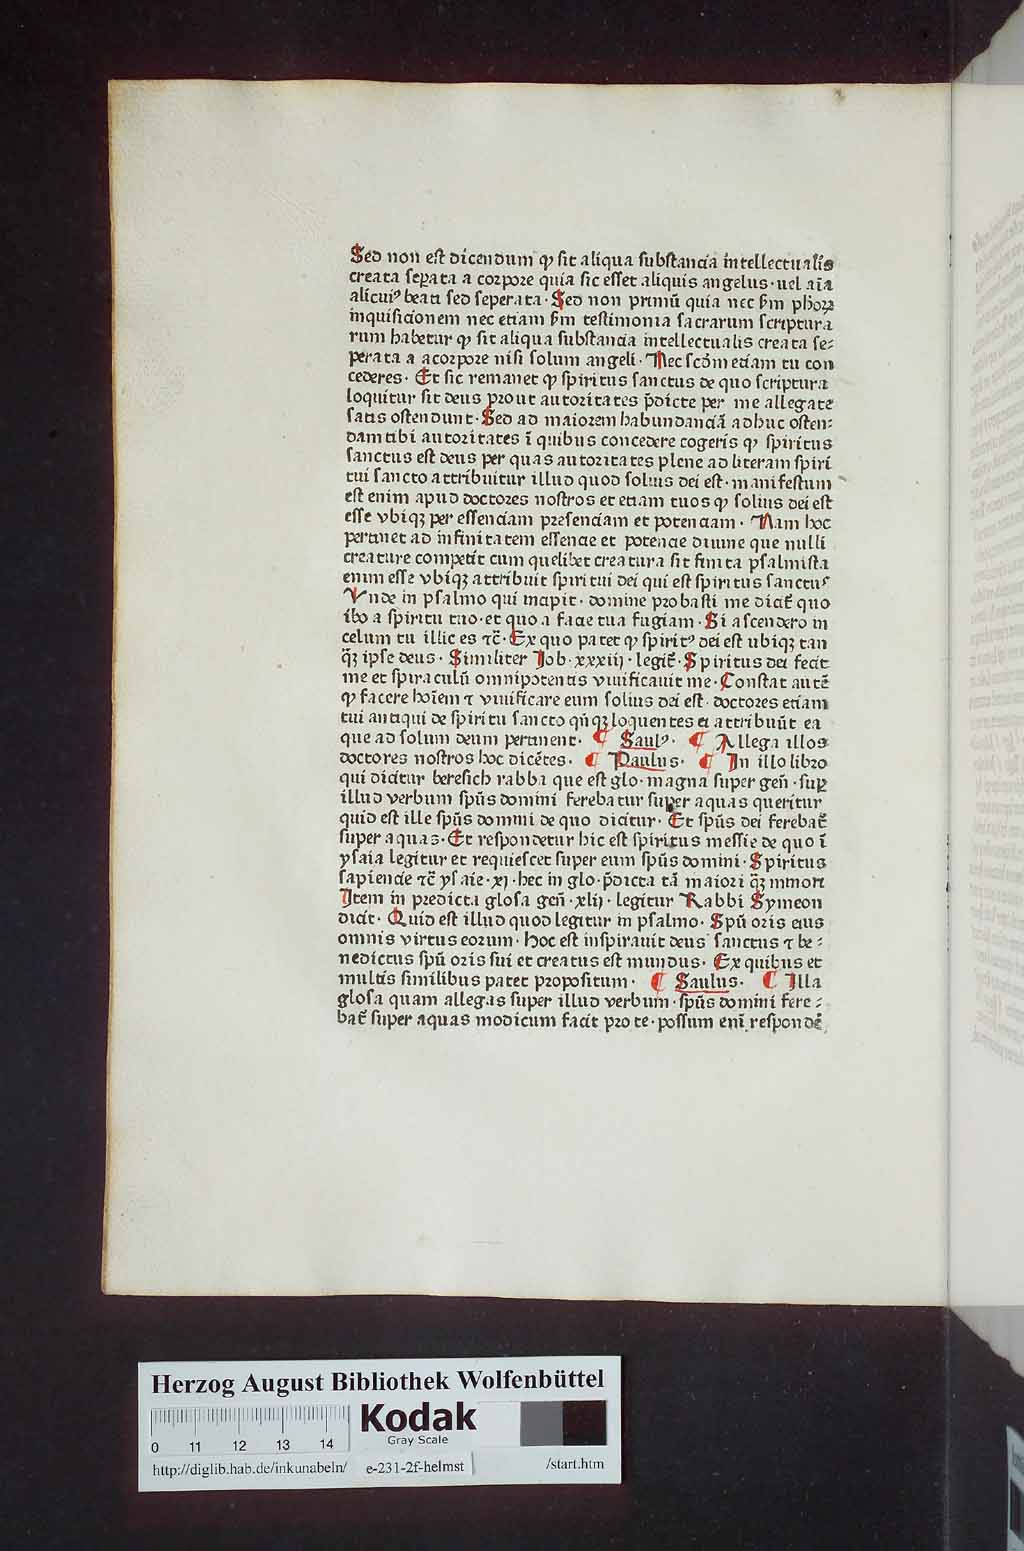 Sed non est dicendum ꝙ sit aliqua substancia intellectualis
creata seꝑata a corpore quia sic esset aliquis angelus · uel aīa
alicuiꝰ beati sed seperata · Sed non primū quia nec ẜm phoꝝ
inquisicionem nec etiam ẜm testimonia sacrarum scriptura
rum habetur ꝙ sit aliqua substancia intellectualis creata se⸗
perata a acorpore nisi solum angeli · Nec scōm etiam tu con
cederes · Et sic remanet ꝙ spiritus sanctus de quo scriptura
loquitur sit deus prout autoritates p̄dicte per me allegate
satis ostendunt · Sed ad maiorem habundanciā adhuc osten⸗
dam tibi autoritates ī quibus concedere cogeris ꝙ spiritus
sanctus est deus per quas autoritates plene ad literam spiri
tui sancto attribuitur illud quod solius dei est · manifestum
est enim apud doctores nostros et etiam tuos ꝙ solius dei est
esse vbiqꝫ per essenciam presenciam et potenciam · Nam hoc
pertinet ad infinitatem essencie et potencie diuine que nulli
creature competit cum quelibet creatura sit finita psalmista
enim esse vbiqꝫ attribuit spiritui dei qui est spiritus sanctuꝰ
Vnde in psalmo qui incipit · domine probasti me dicit̄ quo
ibo a spiritu tuo · et quo a facie tua fugiam · Si ascendero in
celum tu illic es ⁊c̄ · Ex quo patet ꝙ spiritꝰ dei est ubiqꝫ tan
q̄ꝫ ipse deus · Similiter Job · xxxiij · legit̄ · Spiritus dei fecit
me et spiraculū omnipotentis viuificauit me · Constat autē
ꝙ facere hoīem ⁊ viuificare eum solius dei est · doctores etiam
tui antiqui de spiritu sancto qn̄qꝫ loquentes ei attribuūt ea
que ad solum deum pertinent · ¶ Saulꝰ · ¶ Allega illos
doctores nostros hoc dicētes · ¶ Paulus · ¶ In illo libro
qui dicitur beresich rabba que est glo · magna super gen̄ · suꝑ
illud verbum spūs domini ferebatur super aquas queritur
quid est ille spūs domini de quo dicitur · Et spūs dei ferebat̄
super aquas · Et respondetur hic est spiritus messie de quo ī
ysaia legitur et requiescet super eum spūs domini · Spiritus
sapiencie ⁊c̄ ysaie · xj · hec in glo · p̄dicta tā maiori q̄ꝫ minori
Item in predicta glosa gen̄ · xlij · legitur Rabbi Symeon
dicit · Quid est illud quod legitur in psalmo · Spū oris eius
omnis virtus eorum · hoc est inspirauit deus sanctus ⁊ be⸗
nedictus spū oris sui et creatus est mundus · Ex quibus et
multis similibus patet propositum · ¶ Saulus · ¶ Illa
glosa quam allegas super illud verbum · spūs domini fere⸗
bat̄ super aquas modicum facit pro te · possum enī respondē
Herzog August Bibliothek Wolfenbüttel
Kodak
Gray Scale
0 11 12 13 14
http://diglib.hab.de/inkunabeln/ e-231-2f-helmst /start.htm